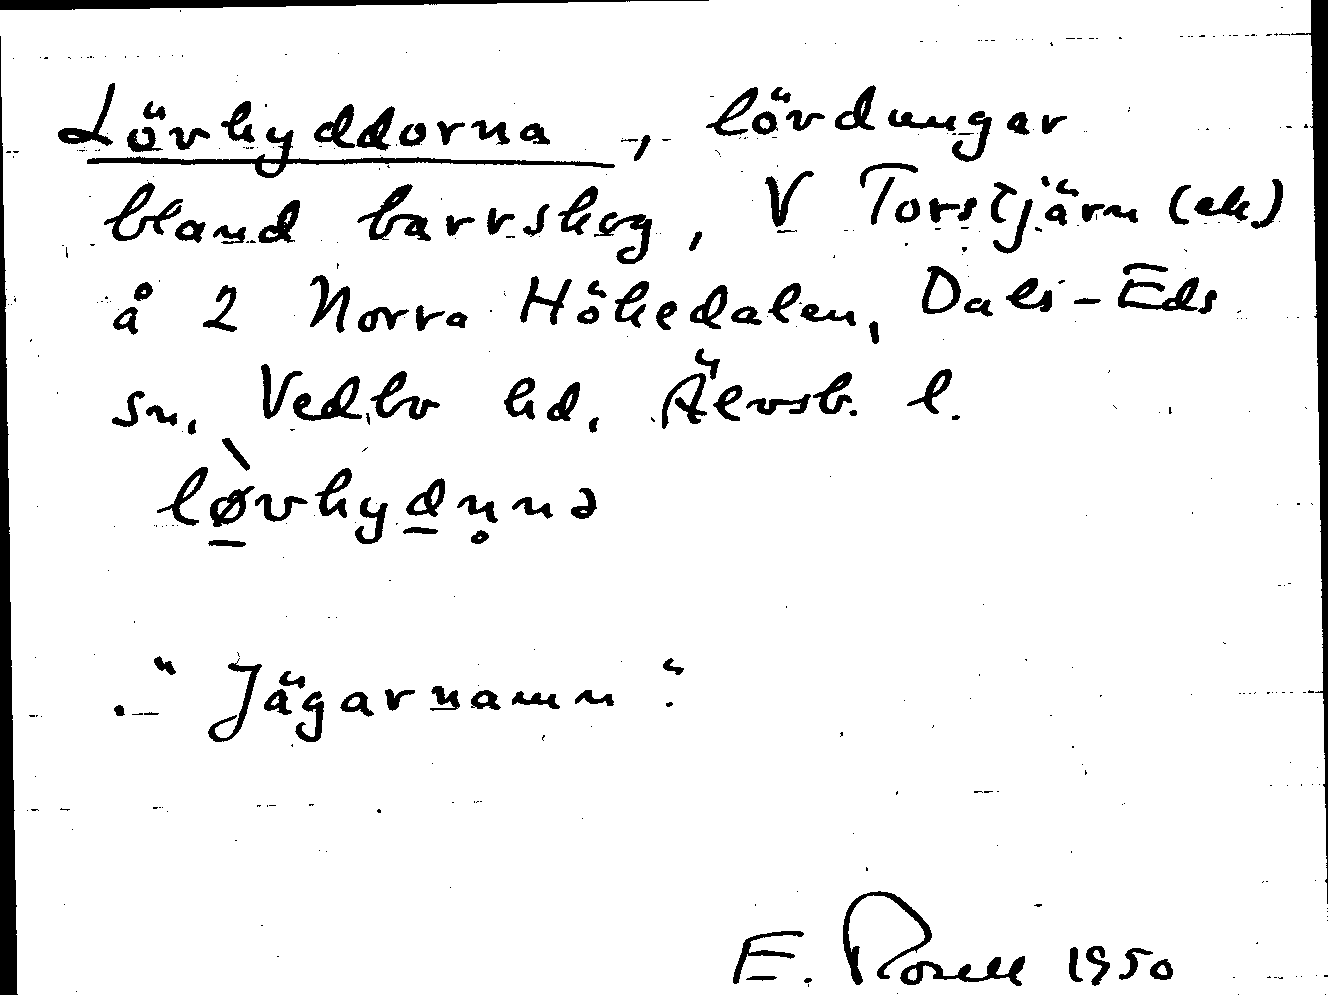 Lövhyddorna, lövdungar
bland barrskog, V Torstjärn (ek.)
å 2 Norra Hökedalen, Dals-Eds
sn, Vedbo hd, Älvsb. l.
lø̠̀vhyd̠n̥nə
"Jägarnamn".
E. Rosell 1950